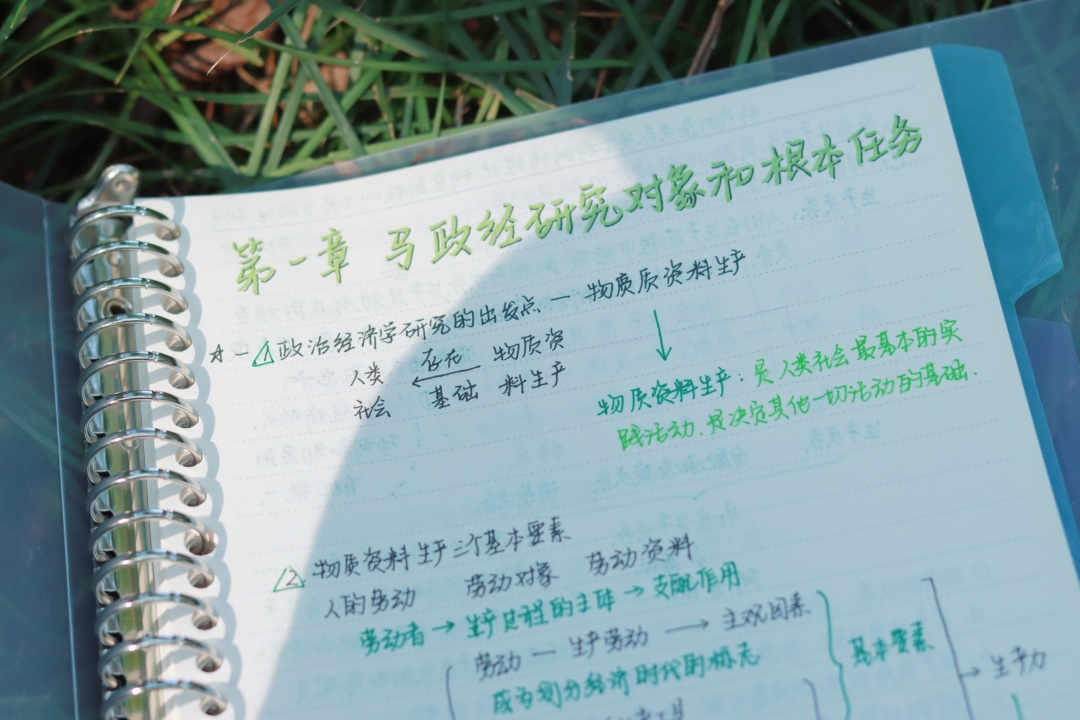 第一章 马政经研究对象和根本任务
☆一 △1 政治经济学研究的出发点 — 物质质资料生产
人类 存在 物质资
社会 ← 基础 料生产
↓
物质资料生产：是人类社会最基本的实
践活动、是决定其他一切活动的基础.
△2 物质资料生产三个基本要素
人的劳动 劳动对象 劳动资料
劳动者 → 生产过程的主体 → 支配作用
劳动 — 生产劳动 → 主观因素
成为划分经济时代的标志
基本要素 → 生产力